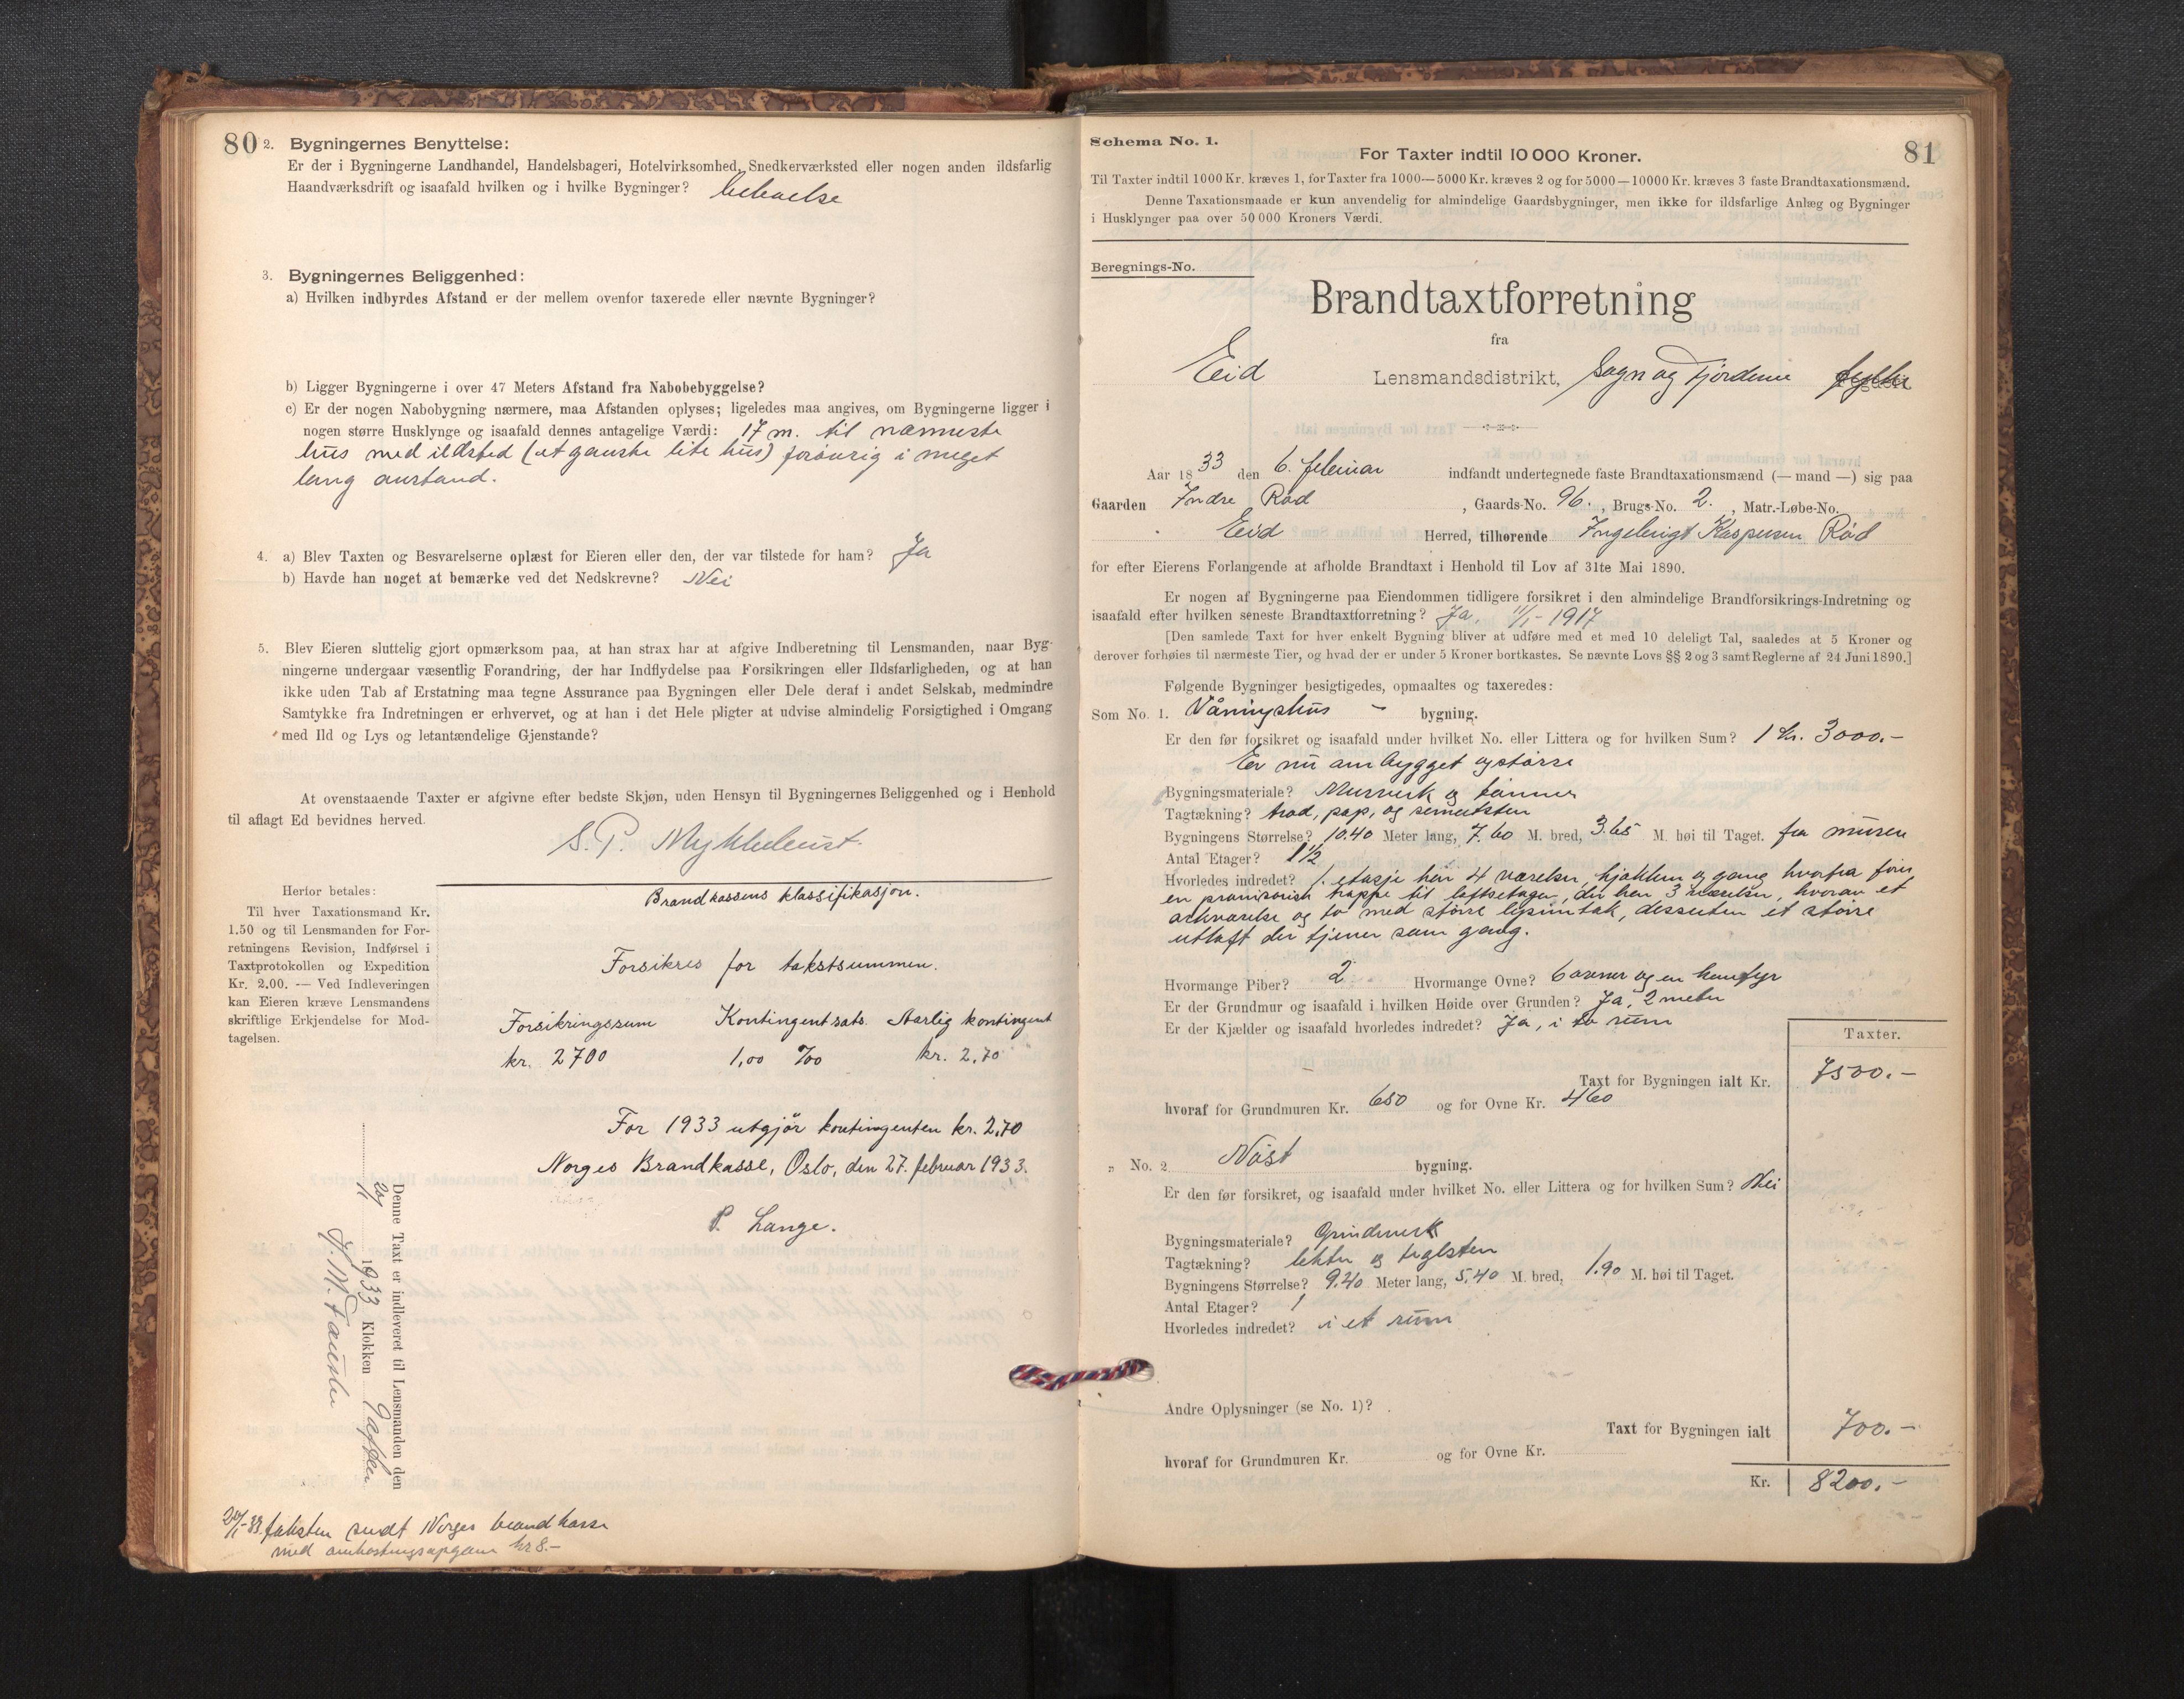 80
2. Bygningernes Benyttelse:
Er der i Bygningerne Landhandel, Handelsbageri, Hotelvirksomhed, Snedkerværksted eller nogen anden ildsfarlig
Haandværksdrift og isaafald hvilken og i hvilke Bygninger? beboelse
3. Bygningernes Beliggenhed:
a) Hvilken indbyrdes Afstand er der mellem ovenfor taxerede eller nævnte Bygninger?
b) Ligger Bygningerne i over 47 Meters Afstand fra Nabobebyggelse?
c) Er der nogen Nabobygning nærmere, maa Afstanden oplyses; ligeledes maa angives, om Bygningerne ligger i
nogen større Husklynge og isaafald dennes antagelige Værdi: 17 m. til nærmeste
hus med ildsted (et ganske lite hus) forøvrig i meget
lang avstand.
4. a) Blev Taxten og Besvarelserne oplæst for Eieren eller den, der var tilstede for ham? Ja
b) Havde han noget at bemærke ved det Nedskrevne? Nei
5. Blev Eieren sluttelig gjort opmærksom paa, at han strax har at afgive Indberetning til Lensmanden, naar Byg-
ningerne undergaar væsentlig Forandring, der har Indflydelse paa Forsikringen eller Ildsfarligheden, og at han
ikke uden Tab af Erstatning maa tegne Assurance paa Bygningen eller Dele deraf i andet Selskab, medmindre
Samtykke fra Indretningen er erhvervet, og at han i det Hele pligter at udvise almindelig Forsigtighed i Omgang
med Ild og Lys og letantændelige Gjenstande?
At ovenstaaende Taxter er afgivne efter bedste Skjøn, uden Hensyn til Bygningernes Beliggenhed og i Henhold
til aflagt Ed bevidnes herved.
S. P. Myklebust.
Herfor betales:
Til hver Taxationsmand Kr.
1.50 og til Lensmanden for For-
retningens Revision, Indførsel i
Taxtprotokollen og Expedition
Kr. 2.00. — Ved Indleveringen
kan Eieren kræve Lensmandens
skriftlige Erkjendelse for Mod-
tagelsen.
Brandkassens klassifikasjon.
Forsikres for takstsummen.
Forsikringssum Kontingentsats. Aarlig kontingent
kr. 2700 1,00 ‰ kr. 2,70
For 1933 utgjør kontingenten kr. 2,70
Norges Brandkasse, Oslo, den 27. februar 1933.
P. Lange.
Denne Taxt er indleveret til Lensmanden den
1933 Klokken 9 aften
20/1-33. taksten sendt Norges brandkasse
med kr 8.-
81
Schema No. 1.
For Taxter indtil 10 000 Kroner.
Til Taxter indtil 1000 Kr. kræves 1, for Taxter fra 1000—5000 Kr. kræves 2 og for 5000—10000 Kr. kræves 3 faste Brandtaxationsmænd.
Denne Taxationsmaade er kun anvendelig for almindelige Gaardsbygninger, men ikke for ildsfarlige Anlæg og Bygninger
i Husklynger paa over 50 000 Kroners Værdi.
Beregnings-No.
Brandtaxtforretning
fra
Eid Lensmandsdistrikt, Sogn og Fjordene fylke
Aar 1833 den 6. februar indfandt undertegnede faste Brandtaxationsmænd (— mand —) sig paa
Gaarden Indre Rød, Gaards-No. 96., Brugs-No. 2., Matr.-Løbe-No.
Eid Herred, tilhørende Ingebrigt Kaspersen Rød
for efter Eierens Forlangende at afholde Brandtaxt i Henhold til Lov af 31te Mai 1890.
Er nogen af Bygningerne paa Eiendommen tidligere forsikret i den almindelige Brandforsikrings-Indretning og
isaafald efter hvilken seneste Brandtaxtforretning? Ja, 11/1-1917
[Den samlede Taxt for hver enkelt Bygning bliver at udføre med et med 10 deleligt Tal, saaledes at 5 Kroner og
derover forhøies til nærmeste Tier, og hvad der er under 5 Kroner bortkastes. Se nævnte Lovs §§ 2 og 3 samt Reglerne af 24 Juni 1890.]
Følgende Bygninger besigtigedes, opmaaltes og taxeredes:
Som No. 1. Våningshus - bygning.
Er den før forsikret og isaafald under hvilket No. eller Littera og for hvilken Sum? 1 kr. 3000.-
Er nu ombygget og større
Bygningsmateriale? Murverk og tømmer
Tagtækning? trod, pap, og sementsten
Bygningens Størrelse? 10.40 Meter lang, 7.60 M. bred, 3.65 M. høi til Taget. fra muren
Antal Etager? 1 1/2
Hvorledes indredet? 1. etasje har 4 værelser, kjøkken og gang hvorfra fører
en provisorisk trappe til loftsetagen, der har 3 værelser, hvorav et
arkværelse og to med større lysinntak, dessuten et større
utloft der tjener som gang.
Hvormange Piber? 2 Hvormange Ovne? 6 ovner og en komfyr
Er der Grundmur og isaafald i hvilken Høide over Grunden? Ja, 2 meter
Er der Kjælder og isaafald hvorledes indredet? Ja, i to rum
Taxter.
Taxt for Bygningen ialt Kr. 7500.-
hvoraf for Grundmuren Kr. 650 og for Ovne Kr. 460
„ No. 2 Nøst bygning.
Er den før forsikret, og isaafald under hvilket No. eller Littera og for hvilken Sum? Nei
Bygningsmateriale? Grindverk
Tagtækning? lekter og teglsten
Bygningens Størrelse? 9.40 Meter lang, 5.40 M. bred, 1.90 M. høi til Taget.
Antal Etager? 1
Hvorledes indredet? i et rum
Andre Oplysninger (se No. 1)?
Taxt for Bygningen ialt 700.-
hvoraf for Grundmuren Kr. og for Ovne Kr.
Kr. 8200.-